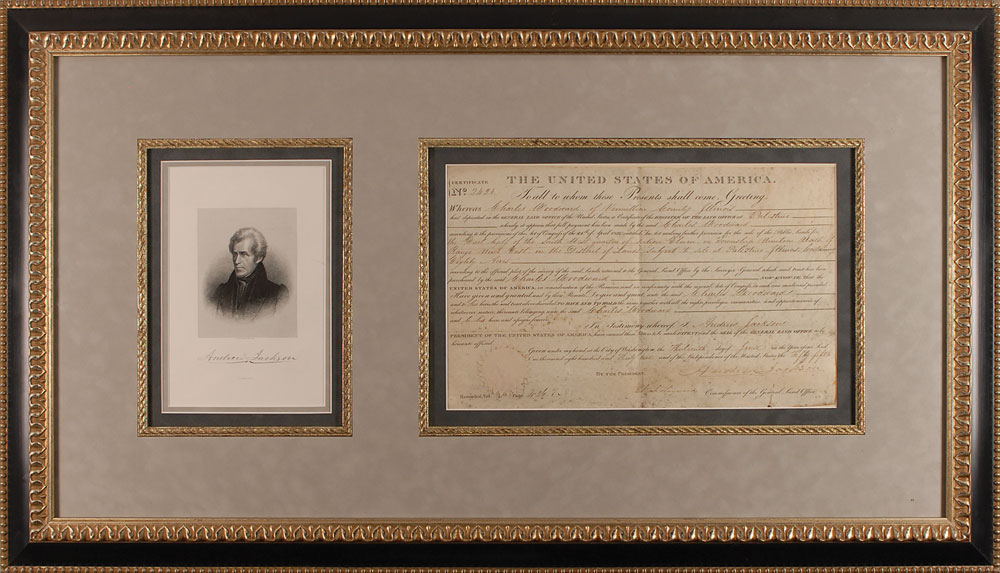 Andrew Jackson
CERTIFICATE
No. 2424
THE UNITED STATES OF AMERICA,
To all to whom these Presents shall come, Greeting:
WHEREAS Charles Woodward of Vermilion County Illinois
have deposited in the GENERAL LAND OFFICE of the United States, a Certificate of the REGISTER OF THE LAND OFFICE at Palestine
whereby it appears that full payment has been made by the said Charles Woodward
according to the provisions of the Act of Congress of the 24th of April 1820, entitled "An Act making further provision for the sale of the Public Lands," for
the East half of the South West quarter of Section Eleven in Township Nineteen North of
Range West in the District of Lands subject to sale at Palestine Illinois
according to the official plat of the survey of the said Lands, returned to the General Land Office by the Surveyor General, which said tract has been
purchased by the said Charles Woodward NOW KNOW YE, that the
UNITED STATES OF AMERICA, in consideration of the Premises, and in conformity with the several Acts of Congress in such case made and provided,
Have given and granted, and by these Presents Do give and grant, unto the said Charles Woodward
and to his heirs, the said tract above described: TO HAVE AND TO HOLD the same, together with all the rights, privileges, immunities, and appurtenances of
whatsoever nature, thereunto belonging, unto the said Charles Woodward
and to his heirs and assigns forever.
In Testimony whereof, I, Andrew Jackson
PRESIDENT OF THE UNITED STATES OF AMERICA, have caused these Letters to be made PATENT, and the SEAL of the GENERAL LAND OFFICE to be
hereunto affixed.
Given under my hand, at the City of Washington, the day of in the Year of our Lord
one thousand eight hundred and thirty one and of the Independence of the United States the fifty fifth
BY THE PRESIDENT: Andrew Jackson
Commissioner of the General Land Office.
Recorded, Vol. Page